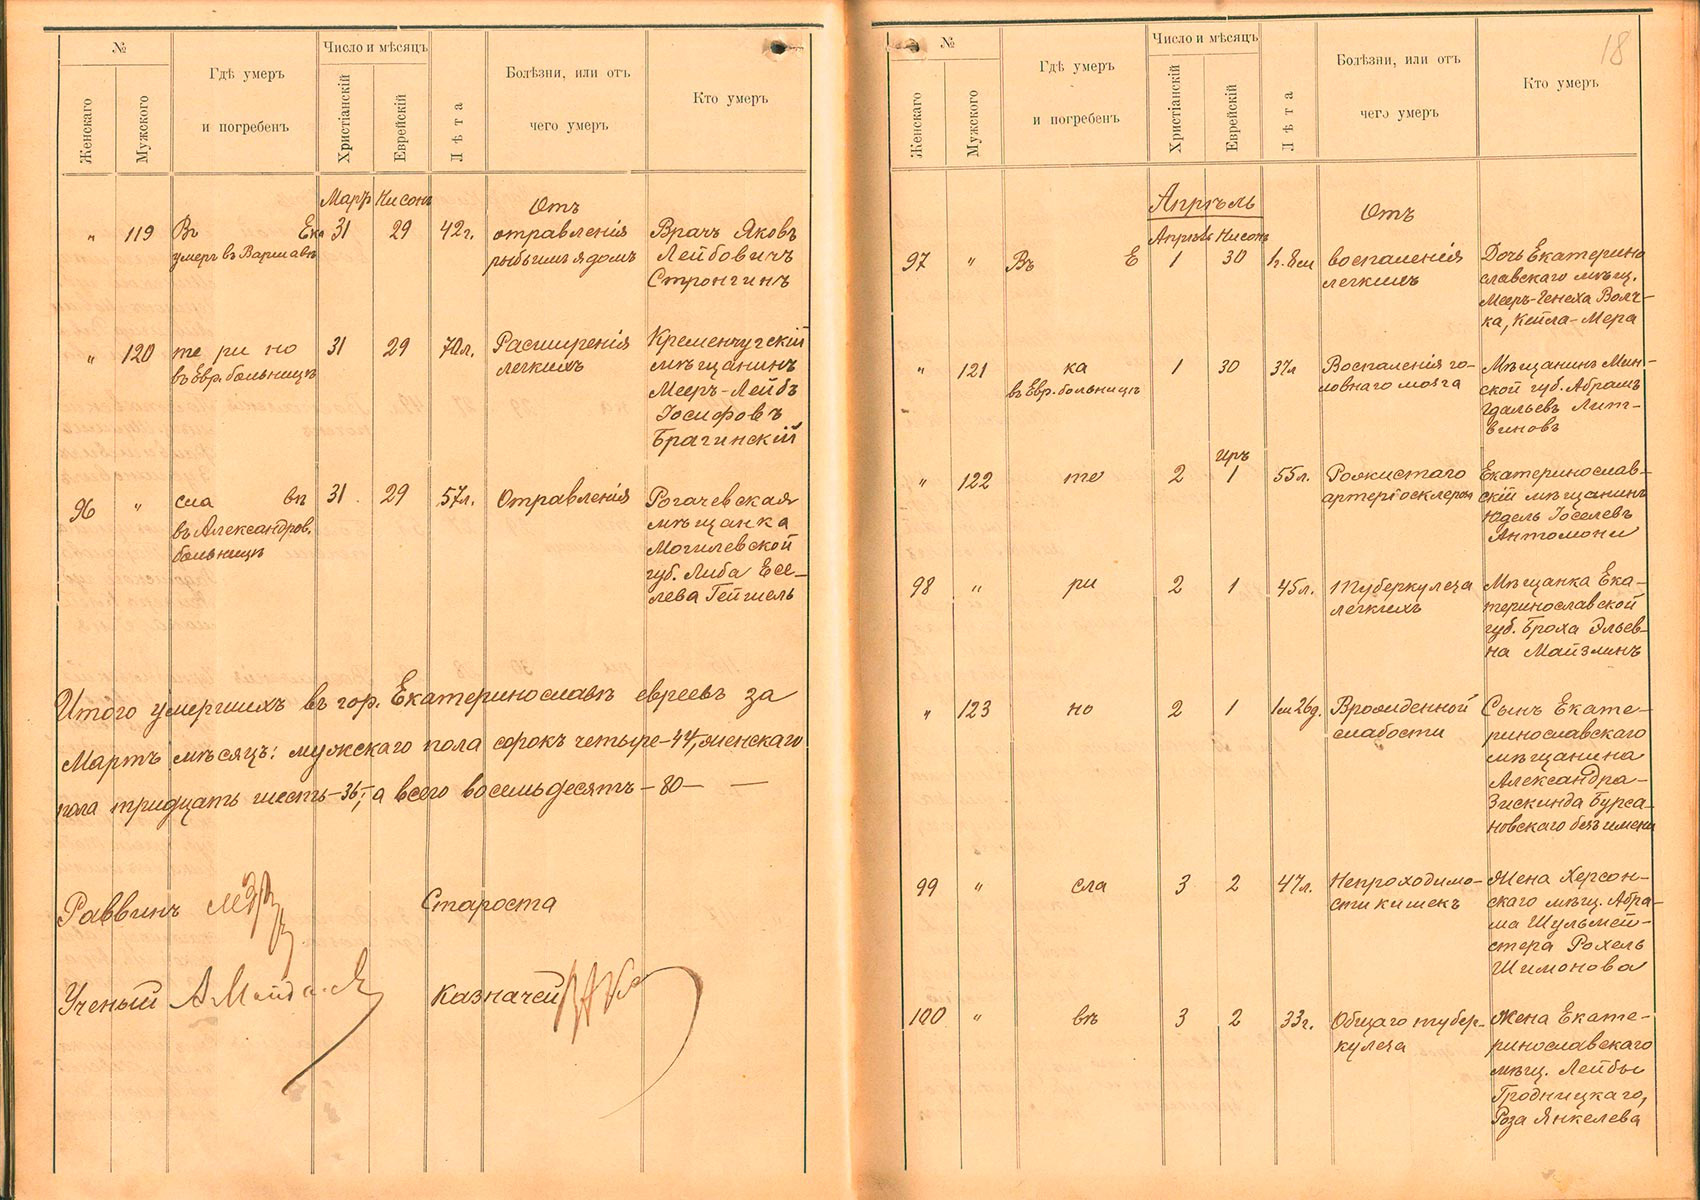 №
Женскаго
Мужского
Гдѣ умеръ
и погребенъ
Число и мѣсяцъ
Христіанскій
Еврейскій
Лѣта
Болѣзни, или отъ
чего умеръ
Кто умеръ
Мартъ Нисонъ
Отъ
„ 119 Въ Ека 31 29 42г. отравленія Врачъ Яковъ
умеръ въ Варшавѣ рыбьимъ ядомъ Лейбовичъ
Стронгинъ
„ 120 те ри но 31 29 70л. Расширенія Кременчугскій
въ Евр. больницѣ легкихъ мѣщанинъ
Мееръ-Лейбъ
Іосифовъ
Брагинскій
96 „ сла вѣ 31 29 57л. Отравленія Рогачевская
въ Александров. мѣщанка
больницѣ Могилевской
губ. Либа Есе-
лева Гейшель
Итого умершихъ въ гор. Екатеринославѣ евреевъ за
Мартъ мѣсяцъ: мужскаго пола сорокъ четыре-44, женскаго
пола тридцать шесть-36-, а всего восемьдесятъ-80- -
Раввинъ Староста
Ученый Казначей
18
№
Женскаго
Мужского
Гдѣ умеръ
и погребенъ
Число и мѣсяцъ
Христіанскій
Еврейскій
Лѣта
Болѣзни, или отъ
чего умеръ
Кто умеръ
Апрѣль
Отъ
Апрѣль Нисонъ
97 „ Въ Е 1 30 1г. 8м воспаленія Дочь Екатерино
легкихъ славскаго мѣщ.
Мееръ-Генеха Волч-
ка, Кейла-Мера
„ 121 ка 1 30 37л Воспаленія го- Мѣщанинъ Мин-
въ Евр. больницѣ ловнаго мозга ской губ. Абрамъ
Гдальевъ Лит-
виновъ
Иръ
„ 122 те 2 1 55л. Рожистаго Екатеринослав-
артеріосклероза скій мѣщанинъ
Юдель Іоселевъ
Антомони
98 „ ри 2 1 45л. Туберкулеза Мѣщанка Ека-
легкихъ теринославской
губ. Броха Эльев-
на Майзлинъ
„ 123 но 2 1 1м 26д. Врожденной Сынъ Екате-
слабости ринославскаго
мѣщанина
Александра-
Зискинда Бурса-
новскаго безъ имени
99 „ сла 3 2 47л. Непроходимо- Жена Херсон-
сти кишекъ скаго мѣщ. Абра-
ма Шульмей-
стера Рохель
Шимонова
100 „ вѣ 3 2 33г. Общаго тубер- Жена Екате-
кулеза ринославскаго
мѣщ. Лейбы
Гродницкаго,
Роза Янкелева